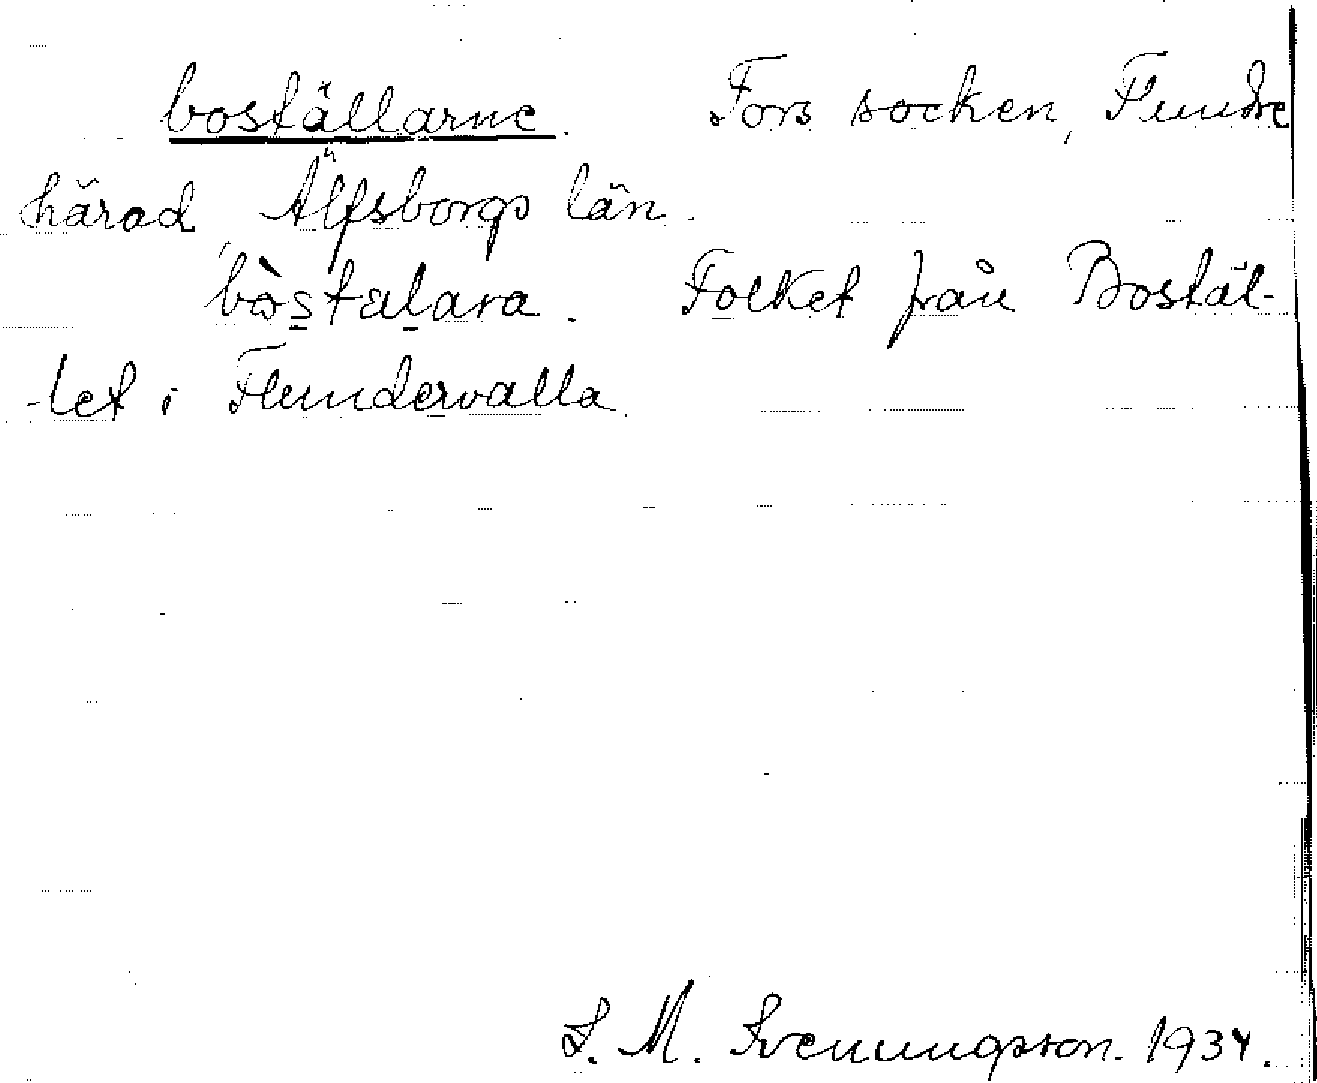 boställarne. Fors socken, Flundre
härad, Älfsborgs län.
bòstalara. Folket från Bostäl-
-let i Flundervalla.
S. M. Svenungsson. 1934.